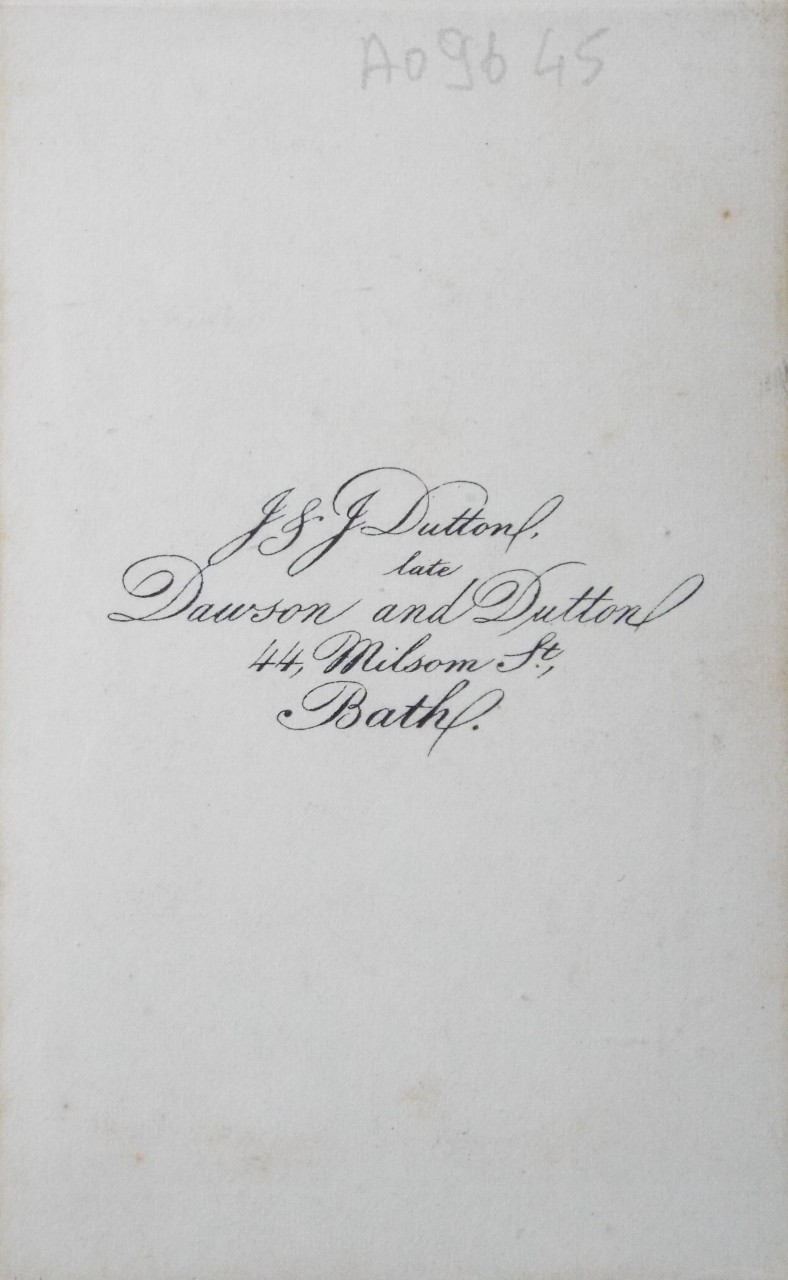 A09b 45
J & J Dutton,
late
Dawson and Dutton
44, Milsom St.,
Bath.